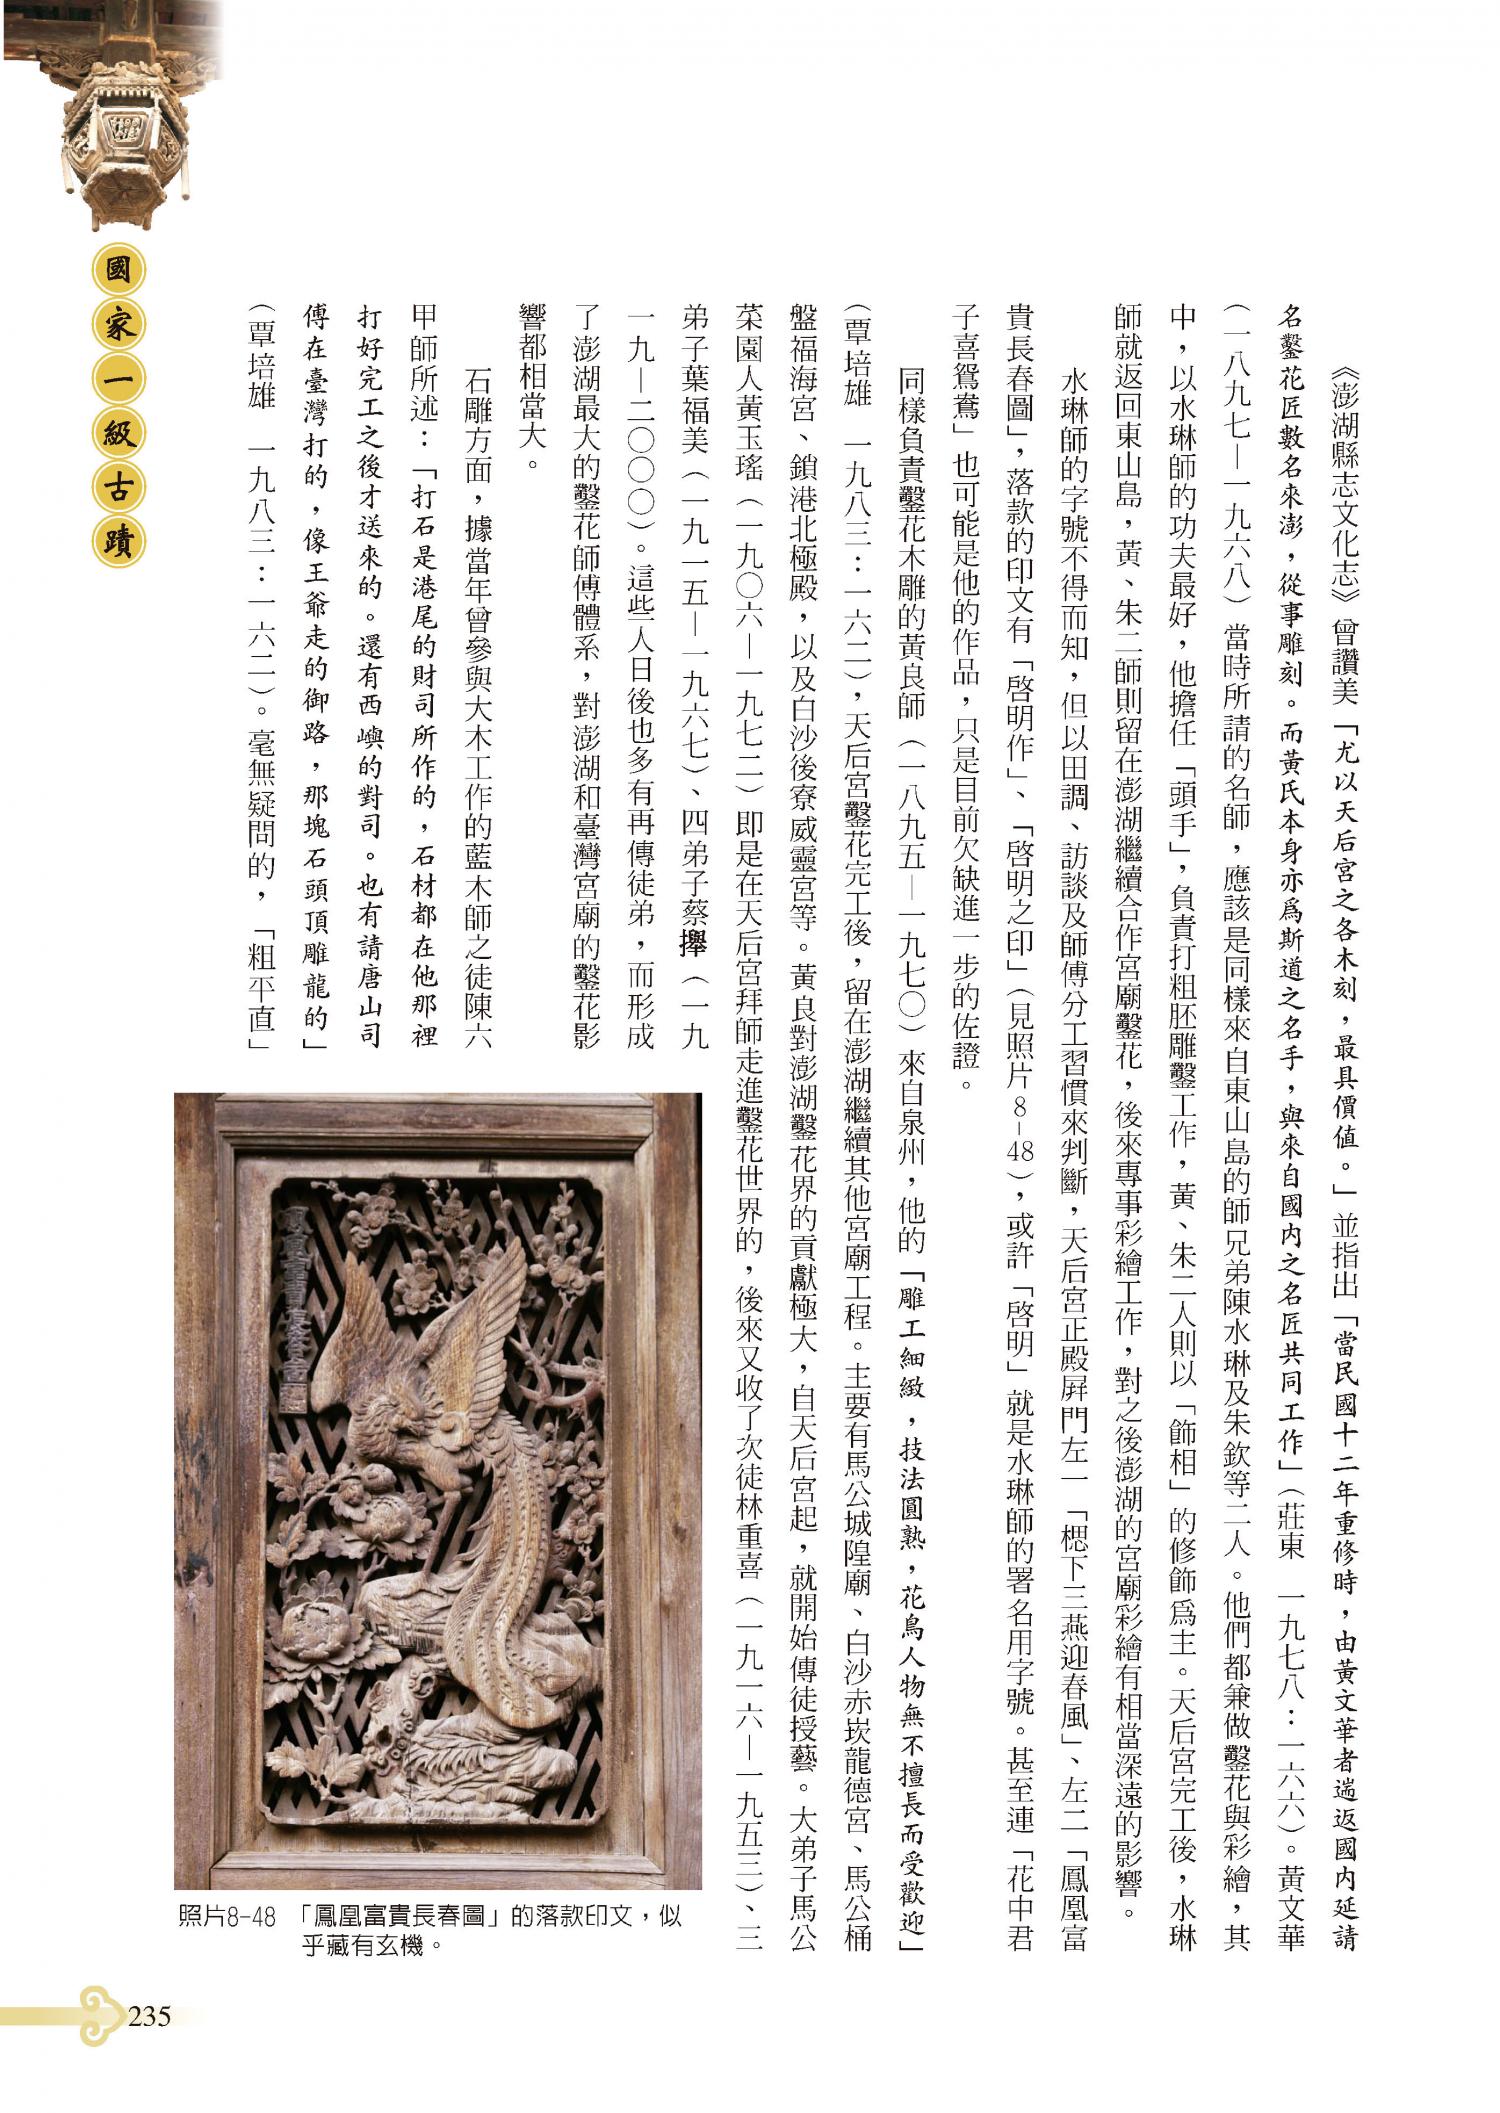 《澎湖縣志文化志》曾讚美「尤以天后宮之各木刻，最具價值。」並指出「當民國十二年重修時，由黃文華者遄返國內延請
名鑿花匠數名來澎，從事雕刻。而黃氏本身亦為斯道之名手，與來自國內之名匠共同工作」（莊東　一九七八：一六六）。黃文華
（一八九七—一九六八）當時所請的名師，應該是同樣來自東山島的師兄弟陳水琳及朱欽等二人。他們都兼做鑿花與彩繪，其
中，以水琳師的功夫最好，他擔任「頭手」，負責打粗胚雕鑿工作，黃、朱二人則以「飾相」的修飾為主。天后宮完工後，水琳
師就返回東山島，黃、朱二師則留在澎湖繼續合作宮廟鑿花，後來專事彩繪工作，對之後澎湖的宮廟彩繪有相當深遠的影響。
水琳師的字號不得而知，但以田調、訪談及師傅分工習慣來判斷，天后宮正殿屛門左一「楒下三燕迎春風」、左二「鳳凰富
貴長春圖」，落款的印文有「啓明作」、「啓明之印」（見照片8-48），或許「啓明」就是水琳師的署名用字號。甚至連「花中君
子喜鴛鴦」也可能是他的作品，只是目前欠缺進一步的佐證。
同樣負責鑿花木雕的黃良師（一八九五—一九七〇）來自泉州，他的「雕工細緻，技法圓熟，花鳥人物無不擅長而受歡迎」
（覃培雄　一九八三：一六二），天后宮鑿花完工後，留在澎湖繼續其他宮廟工程。主要有馬公城隍廟、白沙赤崁龍德宮、馬公桶
盤福海宮、鎖港北極殿，以及白沙後寮威靈宮等。黃良對澎湖鑿花界的貢獻極大，自天后宮起，就開始傳徒授藝。大弟子馬公
菜園人黃玉瑤（一九〇六—一九七二）即是在天后宮拜師走進鑿花世界的，後來又收了次徒林重喜（一九一六—一九五三）、三
弟子葉福美（一九一五—一九六七）、四弟子蔡㩦（一九
一九—二〇〇〇）。這些人日後也多有再傳徒弟，而形成
了澎湖最大的鑿花師傅體系，對澎湖和臺灣宮廟的鑿花影
響都相當大。
石雕方面，據當年曾參與大木工作的藍木師之徒陳六
甲師所述：「打石是港尾的財司所作的，石材都在他那裡
打好完工之後才送來的。還有西嶼的對司。也有請唐山司
傅在臺灣打的，像王爺走的御路，那塊石頭頂雕龍的」
（覃培雄　一九八三：一六二）。毫無疑問的，「粗平直」
鳳凰富貴長春圖
照片8-48　「鳳凰富貴長春圖」的落款印文，似
乎藏有玄機。
國家一級古蹟
235